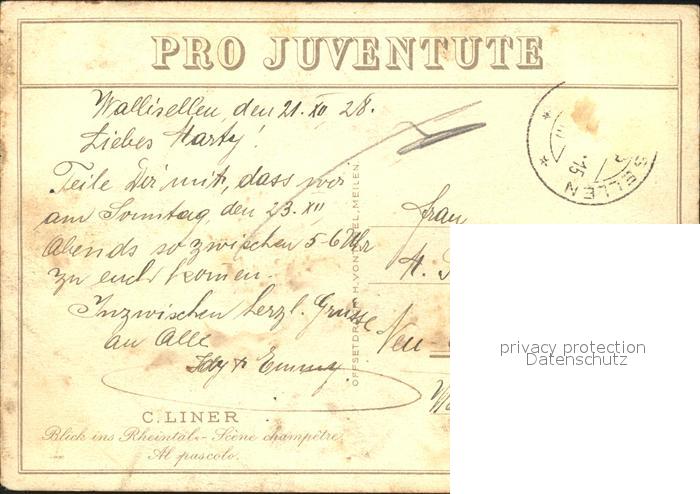 PRO JUVENTUTE
Wallisellen, den 21. XII 28.
Liebes Marty!
Teile Dir mit, dass wir
am Sonntag, den 23. XII
Abends so zwischen 5-6 Uhr
zu euch komen.
Inzwischen herzl. Grüsse
an Alle
Idy & Emmy
C. LINER
Blick ins Rheintal - Scène champêtre
Al pascolo.
OFFSETDRUCK H. VONTOBEL, MEILEN.
SELLEN
15
Frau
Neu-
privacy protection
Datenschutz